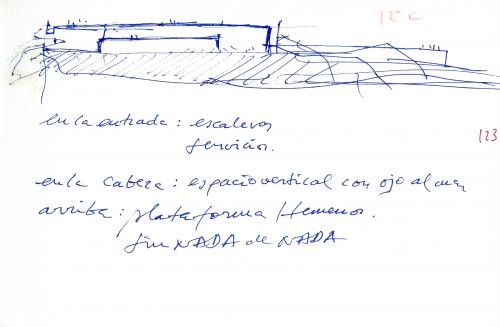 TEC
en la entrada: escaleras
servicios.
123
en la cabeza: espacio vertical con ojo al mar
arriba: plataforma / temenos.
sin NADA de NADA